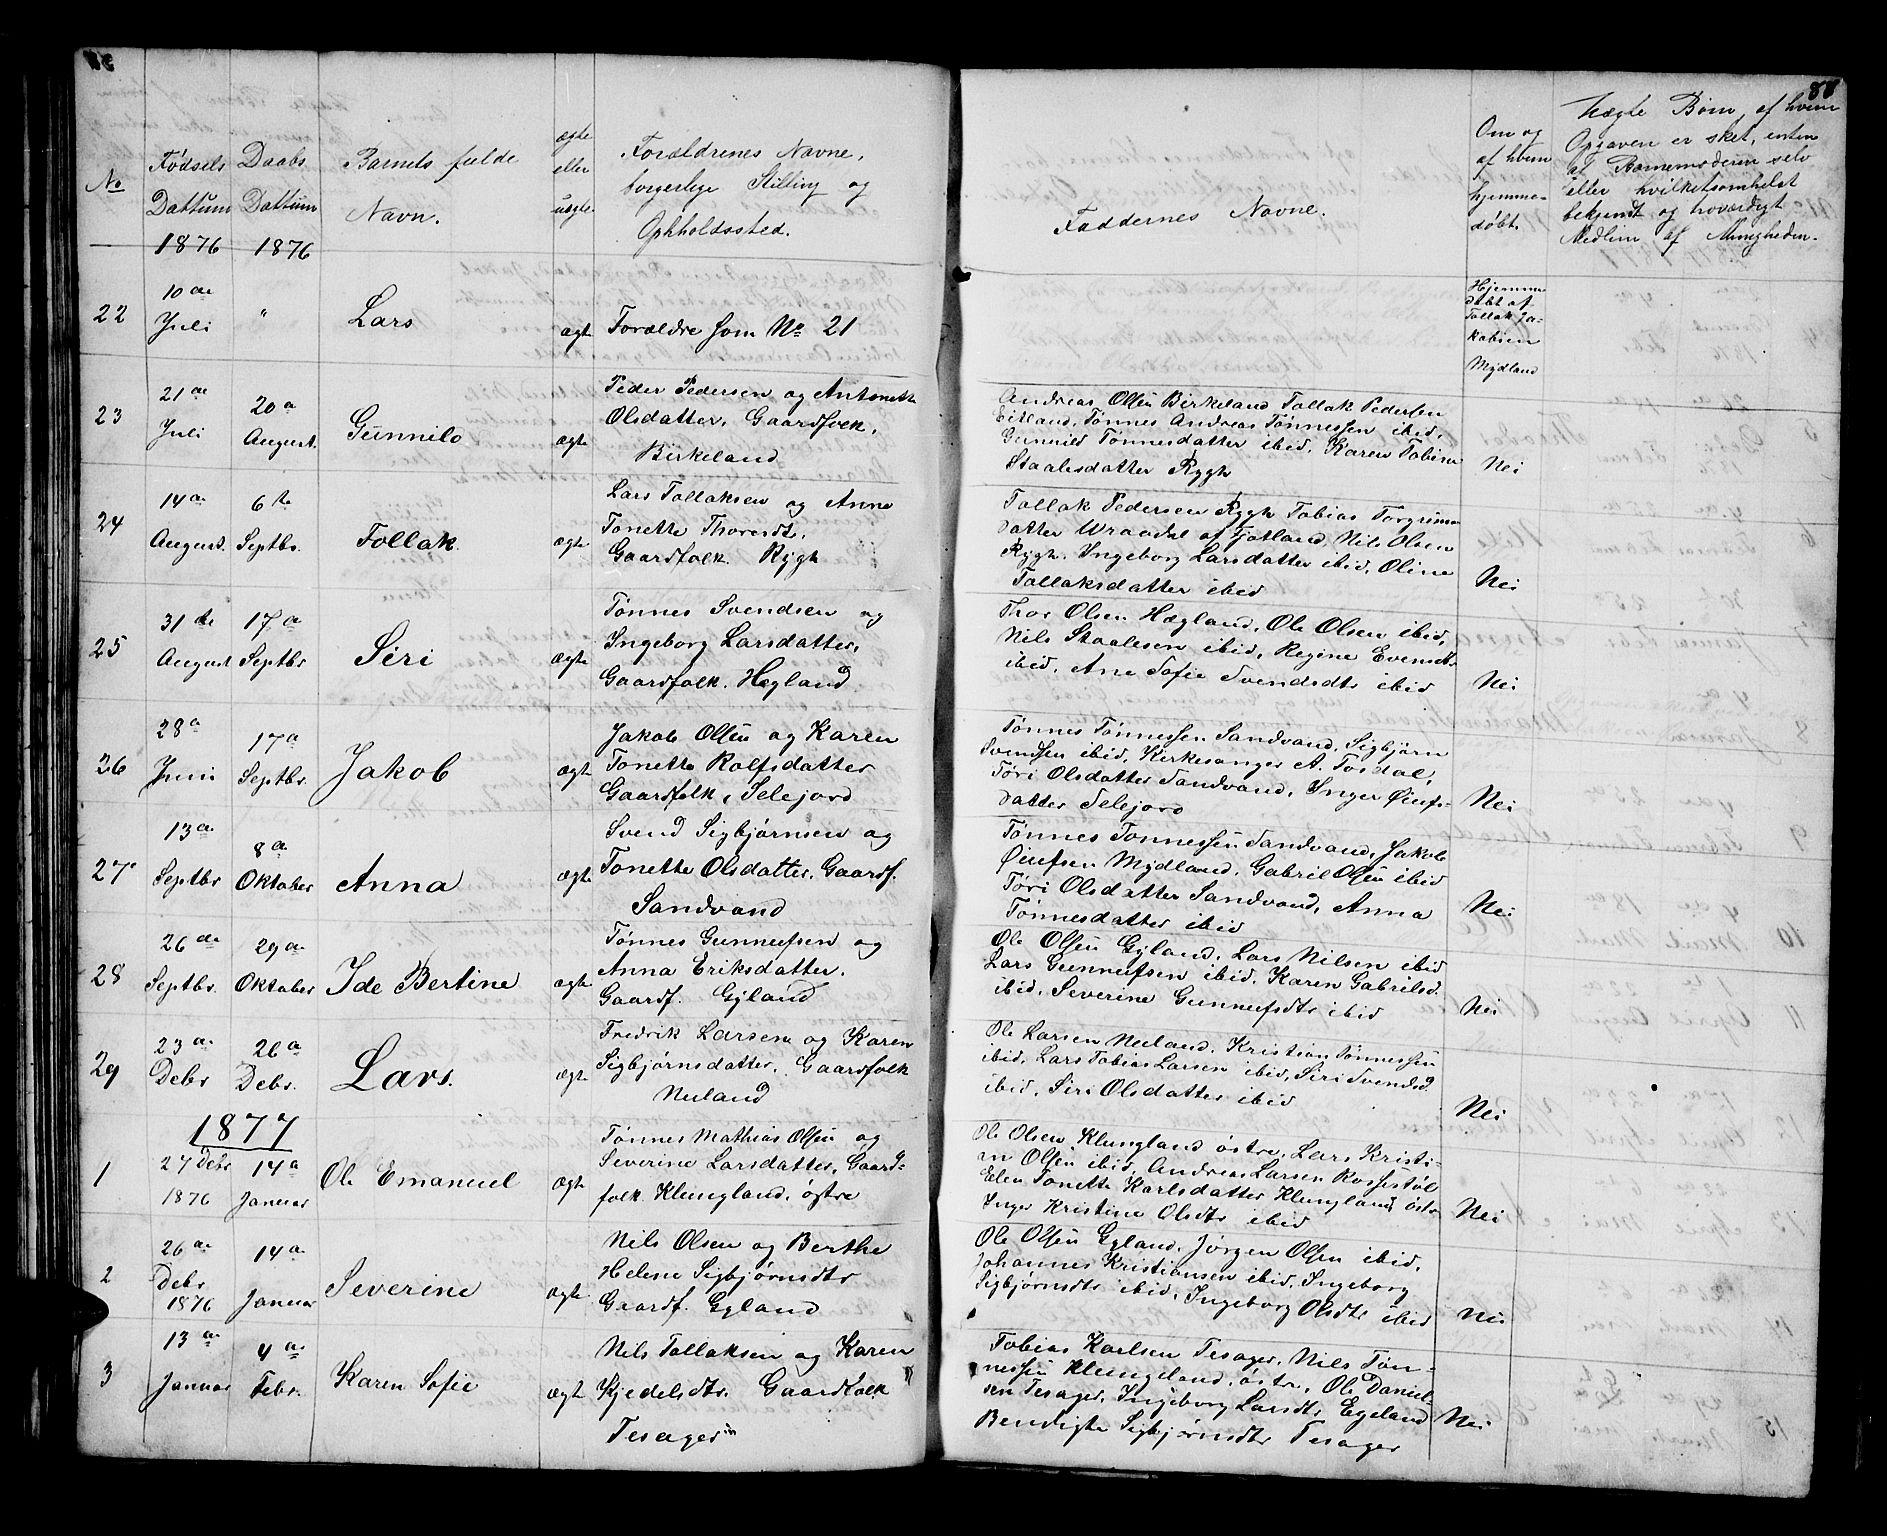 88
No
Fødsels
Dattum
1876
Daabs
Dattum
1876
Barnets fulde
Navn.
ægte
eller
uægte.
Forældrenes Navne,
borgerlige Stilling og
Ophholdssted.
Faddernes Navne.
Om og
af hvem
hjemme-
døbt.
Uægte Børn, af hvem
Opgaven er sket, enten
af Barnemoderen selv
eller hvilketsomhelst
bekjendt og troværdigt
Medlem af Menigheden.
22
10 de
Juli
"
Lars
ægte
Forældre som No 21
Hjemme
døbt af
Tollak Ja-
kobsen
Mydland
23
21 de
Juli
20 a
August.
Gunnild
ægte
Peder Pedersen og Antonette
Olsdatter, Gaardfolk,
Birkeland
Andreas Olsen Birkeland, Tollak Pedersen
Eitland, Tønnes Andreas Tønnessen ibid,
Gunnild Tønnesdatter ibid, Karen Tobine
Staalesdatter Rygh
Nei
24
14 a
August.
6 te
Septbr.
Tollak
ægte
Lars Tollaksen og Anne
Tonette Thoresdt.
Gaardfolk. Rygh
Tollak Pedersen Rygh, Tobias Torgrims-
datter Wraadal af Fjotland, Nils Olsen
Rygh, Ingeborg Larsdatter ibid, Oline
Tollaksdatter ibid
Nei
25
31 te
August
17 a
Septbr
Siri
ægte
Tønnes Svendsen og
Ingeborg Larsdatter,
Gaardfolk. Hægland
Thor Olsen Hægland, Ole Olsen ibid,
Nils Staalesen ibid, Regine Evensdtr
ibid, Ane Sofie Svendsdtr ibid
Nei
26
28 a
Juni
17 a
Septbr.
Jakob
ægte
Jakob Olsen og Karen
Tonette Rolfsdatter
Gaardfolk, Selejord
Tønnes Tønnessen Sandvand, Sigbjørn
Svendsen ibid, Kirkesanger A. Tosdal,
Tøri Olsdatter Sandvand, Inger Øiufs-
datter Selejord
Nei
27
13 a
Septbr
8 a
Oktober
Anna
ægte
Svend Sigbjørnsen og
Tonette Olsdatter. Gaardf.
Sandvand
Tønnes Tønnessen Sandvand, Jakob
Øiufsen Mydland, Gabriel Olsen ibid
Tøri Olsdatter Sandvand, Anna
Tønnesdatter ibid
Nei
28
26 de
Septbr.
29 a
Oktober
Ide Bertine
ægte
Tønnes Gunnufsen og
Anna Eriksdatter.
Gaardf. Gyland
Ole Olsen Gyland, Lars Nilsen ibid
Lars Gunnufsen ibid, Karen Gabrilsd.
ibid, Severine Gunnufsdtr ibid
Nei
29
23 a
Debr
26 a
Debr.
Lars.
ægte
Fredrik Larsen og Karen
Sigbjørnsdatter. Gaardfolk
Nuland
Ole Larsen Nuland, Kristian Tønnessen
ibid, Lars Tobias Larsen ibid, Siri Svendsd
ibid, Siri Olsdatter ibid
Nei
1877
1
27 Debr
1876
14 a
Januar
Ole Emanuel
ægte
Tønnes Mathias Olsen og
Severine Larsdatter, Gaard-
folk. Klungland, østre
Ole Olsen Klungland østre, Lars Kristi-
an Olsen ibid, Andreas Larsen Rossestøl
Elen Tonette Karlsdatter Klungland østre
Inger Kristine Olsdtr ibid
Nei
2
26 a
Debr
1876
14 a
Januar
Severine
ægte
Nils Olsen og Berthe
Helene Sigbjørnsdtr
Gaardf. Egland
Ole Olsen Egland, Jørgen Olsen ibid,
Johannes Kristiansen ibid, Ingeborg
Sigbjørnsdtr ibid, Ingeborg Olsdtr ibid
Nei
3
13 a
Januar
4 a
Febr.
Karen Sofie
ægte
Nils Tollaksen og Karen
Kjedelsdtr. Gaardfolk
Tesager
Tobias Karlsen Tesager, Nils Tøn-
nessen Klungeland, østre, Ole Daniel-
sen Tesager, Ingeborg Larsdtr Egeland
Bendigte Sigbjørnsdtr Tesager
Nei